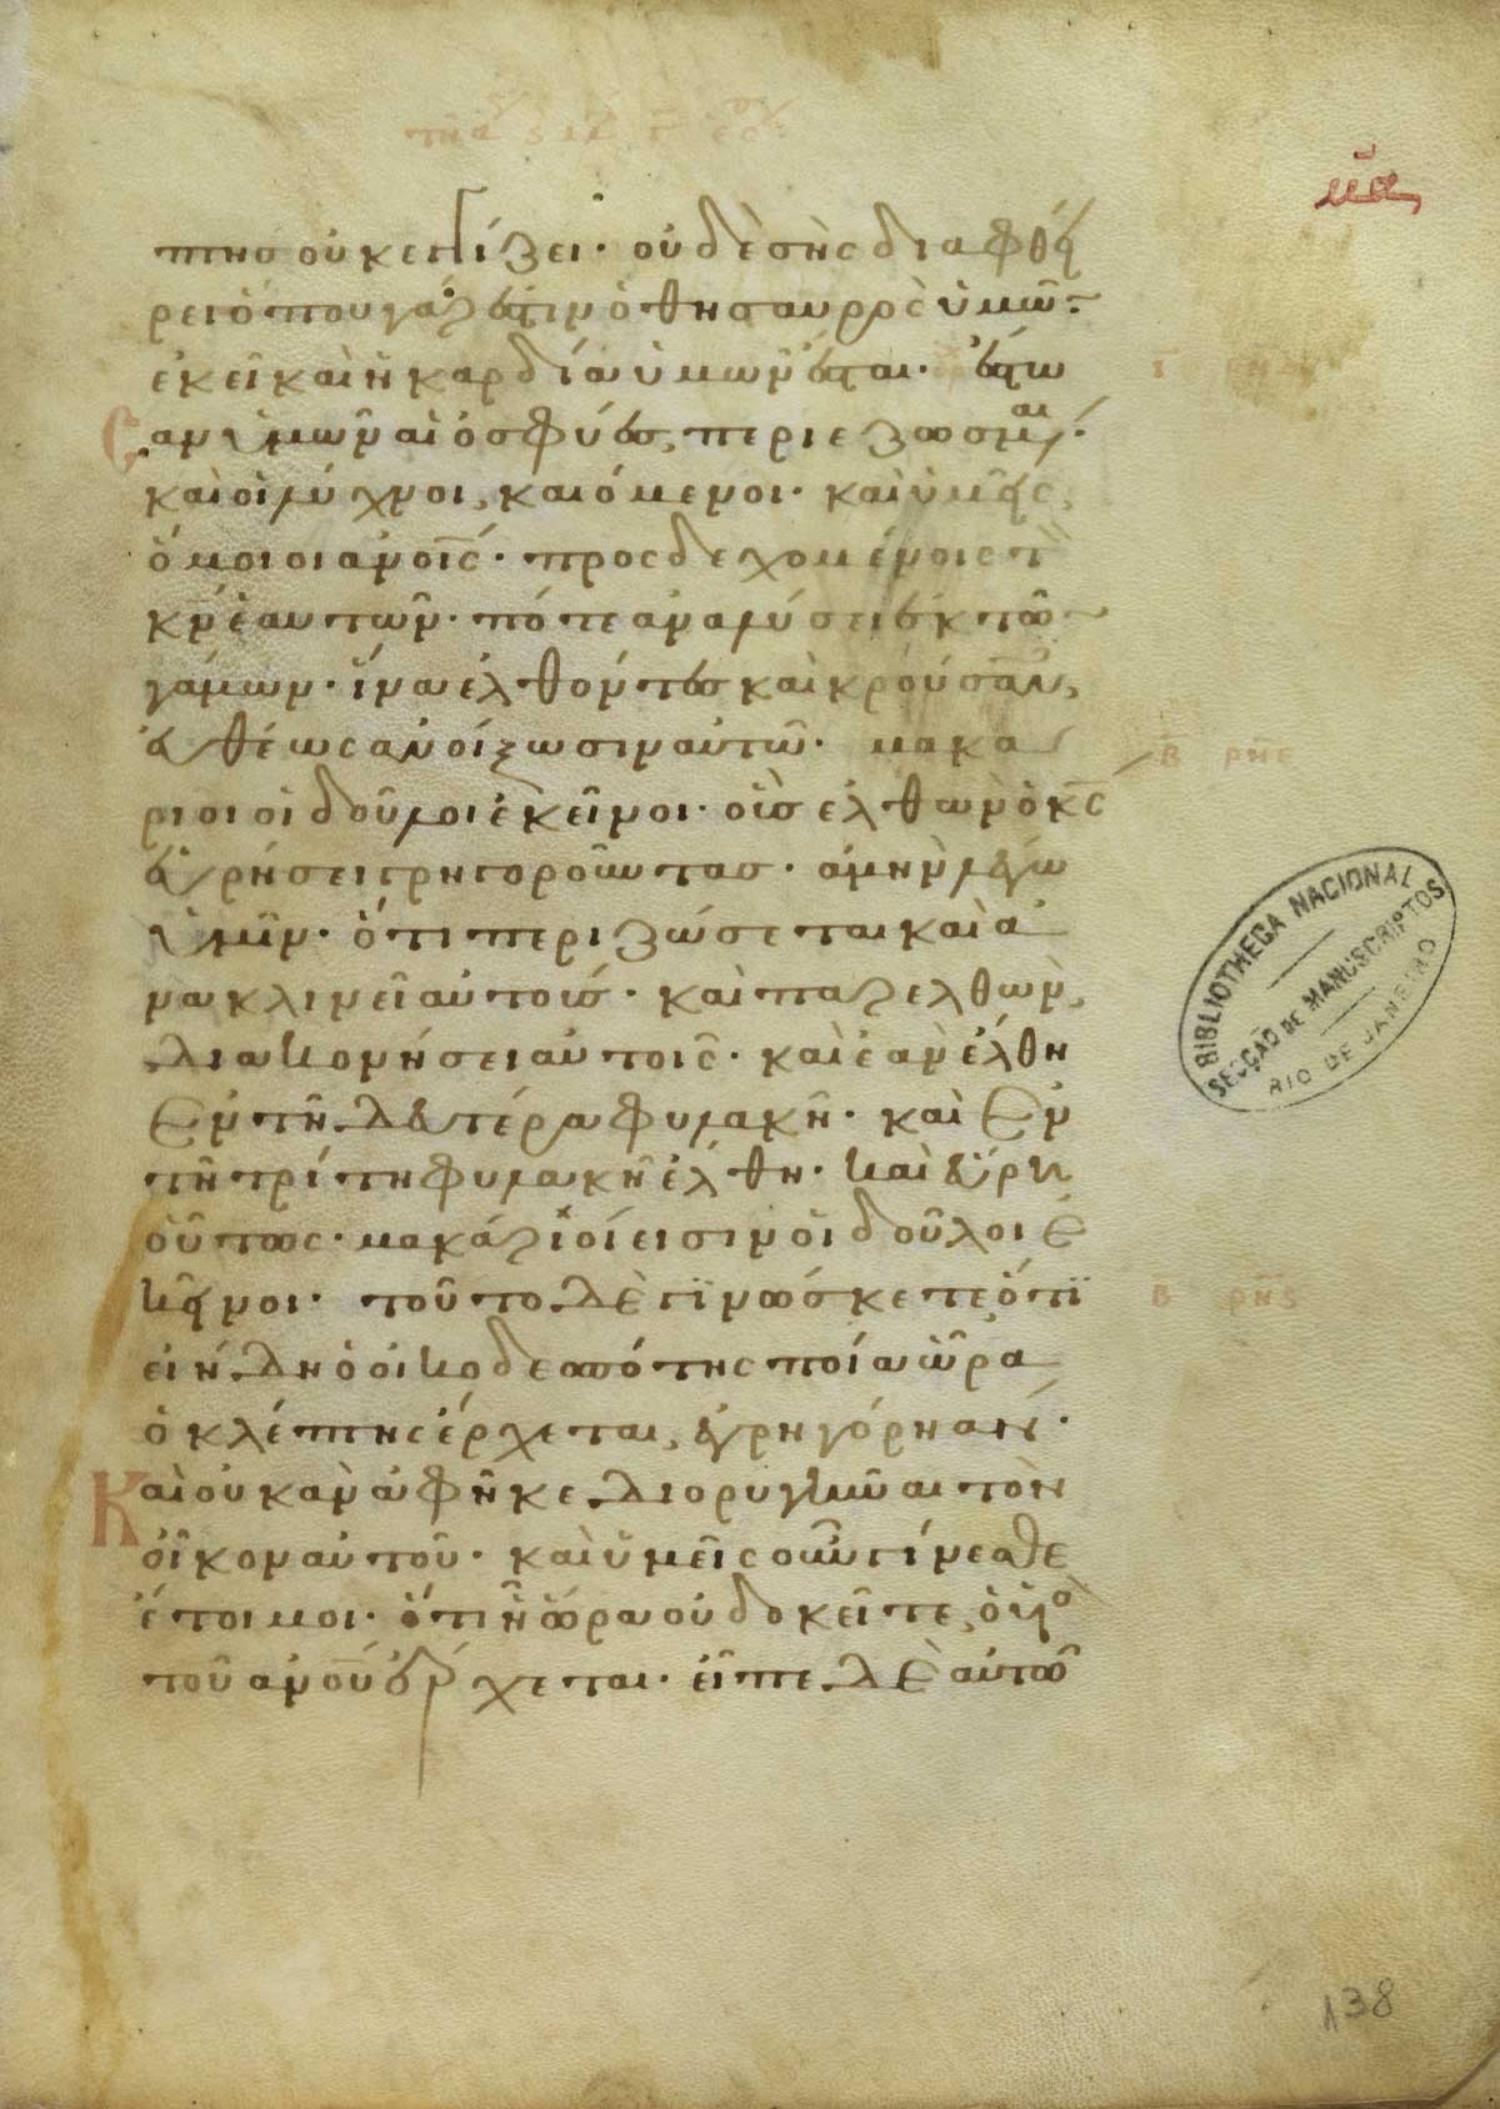 πτησ οὐκ εγγίζει· οὐδὲ σὴς διαφθεί
ρει ὁπου γάρ ἐστιν ὁ θησαυρὸς ὑμῶν·
ἐκεῖ καὶ ἡ καρδία ὑμῶν ἔσται· ἔστω
σαν ὑμῶν αἱ ὀσφύες, περιεζωσμέναι·
καὶ οἱ λύχνοι, καιόμενοι· καὶ ὑμεῖς,
ὅμοιοι ἀνοις· προσδεχομένοις τὸν
κν ἑαυτῶν· πότε αναλύσει ἐκ τῶν
γάμων· ἵνα ἐλθόντος καὶ κρούσαντος,
εὐθέως ἀνοίξωσιν αὐτῶ· μακά
ριοι οἱ δοῦλοι ἐκεῖνοι· οὓς ελθὼν ὁ κς
εὑρήσει γρηγοροῦντας· ἀμὴν λέγω
ὑμῖν· ὅτι περιζώσεται καὶ ἀ
νακλινεῖ αὐτούς· καὶ παρελθὼν,
διακονήσει αὐτοῖς· καὶ ἐὰν ἔλθη
ἐν τῆ δευτέρα φυλακῆ· καὶ ἐν
τῆ τρίτη φυλακῆ ἔλθη· καὶ εὕρη
οὕτως· μακάριοί εισιν οἱ δοῦλοι ἐ
κεῖνοι· τοῦτο δὲ γϊνώσκετε, ὅτϊ
ει ήδη ὁ οἰκοδεσπότης ποία ὥρα
ὁ κλέπτης ἔρχεται, ἐγρηγόρησεν·
Καὶ οὐκ ἀν ἀφῆκε διορυγῆναι τὸν
οἶκον αὐτοῦ· καὶ ὑμεῖς οὖν γίνεσθε
ἕτοιμοι· ὅτι ἧ ὥρα οὐ δοκεῖτε, ὁ υἱὸς
τοῦ ἀνου ἔρχεται· εἶπε δὲ αὐτῶ
μα
Β ρνε
Β ρνς
BIBLIOTHECA NACIONAL
SECÇÃO DE MANUSCRIPTOS
RIO DE JANEIRO
138